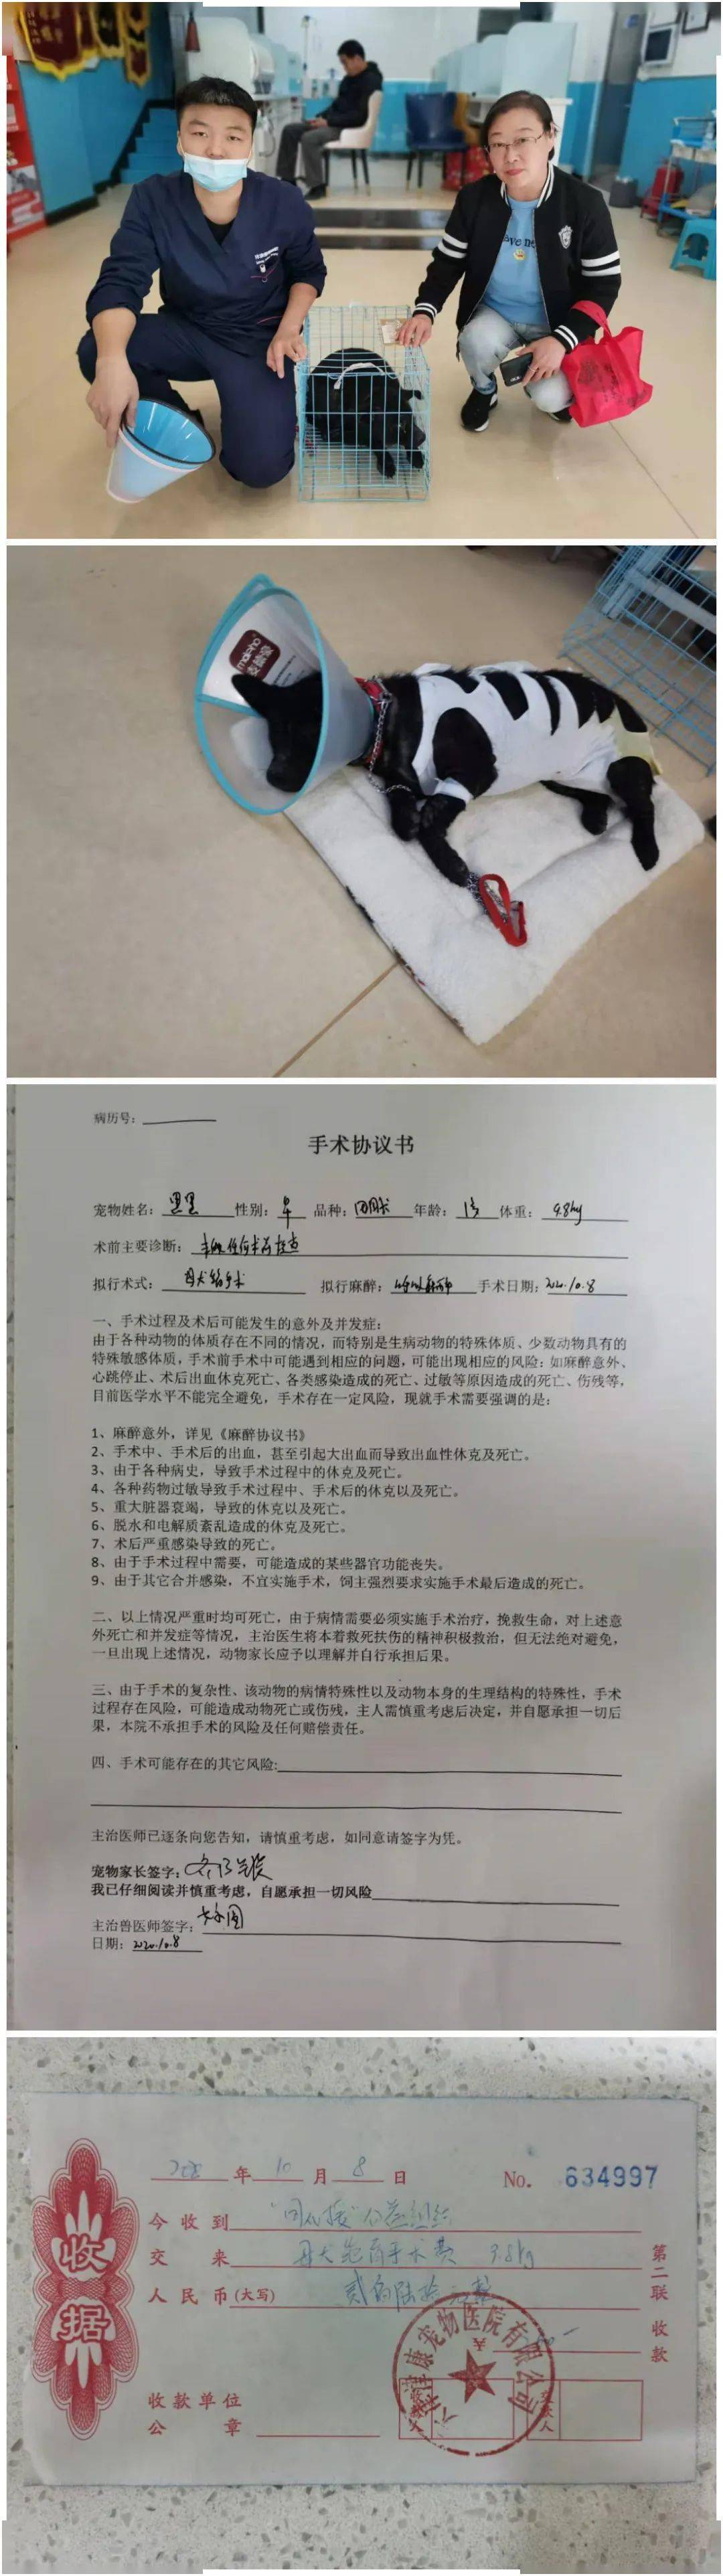 病历号：
手术协议书
宠物姓名：黑里 性别：早 品种：田园犬 年龄：1岁 体重：9.8kg
术前主要诊断：
拟行术式：母犬绝育术 拟行麻醉：呼吸麻醉 手术日期：2020.10.8
一、手术过程及术后可能发生的意外及并发症：
由于各种动物的体质存在不同的情况，而特别是生病动物的特殊体质、少数动物具有的
特殊敏感体质，手术前手术中可能遇到相应的问题，可能出现相应的风险：如麻醉意外、
心跳停止、术后出血休克死亡、各类感染造成的死亡、过敏等原因造成的死亡、伤残等，
目前医学水平不能完全避免，手术存在一定风险，现就手术需要强调的是：
1、麻醉意外，详见《麻醉协议书》
2、手术中、手术后的出血，甚至引起大出血而导致出血性休克及死亡。
3、由于各种病史，导致手术过程中的休克及死亡。
4、各种药物过敏导致手术过程中、手术后的休克以及死亡。
5、重大脏器衰竭，导致的休克以及死亡。
6、脱水和电解质紊乱造成的休克及死亡。
7、术后严重感染导致的死亡。
8、由于手术过程中需要，可能造成的某些器官功能丧失。
9、由于其它合并感染，不宜实施手术，饲主强烈要求实施手术最后造成的死亡。
二、以上情况严重时均可死亡，由于病情需要必须实施手术治疗，挽救生命，对上述意
外死亡和并发症等情况，主治医生将本着救死扶伤的精神积极救治，但无法绝对避免，
一旦出现上述情况，动物家长应予以理解并自行承担后果。
三、由于手术的复杂性、该动物的病情特殊性以及动物本身的生理结构的特殊性，手术
过程存在风险，可能造成动物死亡或伤残，主人需慎重考虑后决定，并自愿承担一切后
果，本院不承担手术的风险及任何赔偿责任。
四、手术可能存在的其它风险：
主治医师已逐条向您告知，请慎重考虑，如同意请签字为凭。
宠物家长签字：
我已仔细阅读并慎重考虑，自愿承担一切风险
主治兽医师签字：
日期：2020.10.8
收据
年 10 月 8 日 No. 634997
今收到 公益组织
交来 母犬绝育手术费 9.8kg
人民币(大写) 贰佰陆拾元整
第二联 收款
收款单位
公章